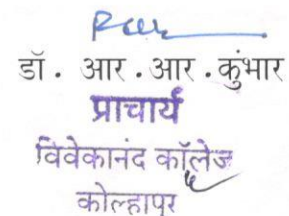 डॉ. आर.आर.कुंभार
प्राचार्य
विवेकानंद कॉलेज
कोल्हापुर